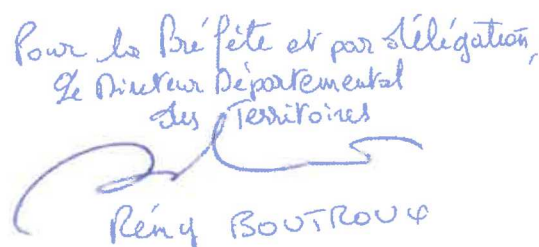 Pour la Préfète et par délégation,
Le Directeur Départemental
des Territoires
Rémy BOUTROUX